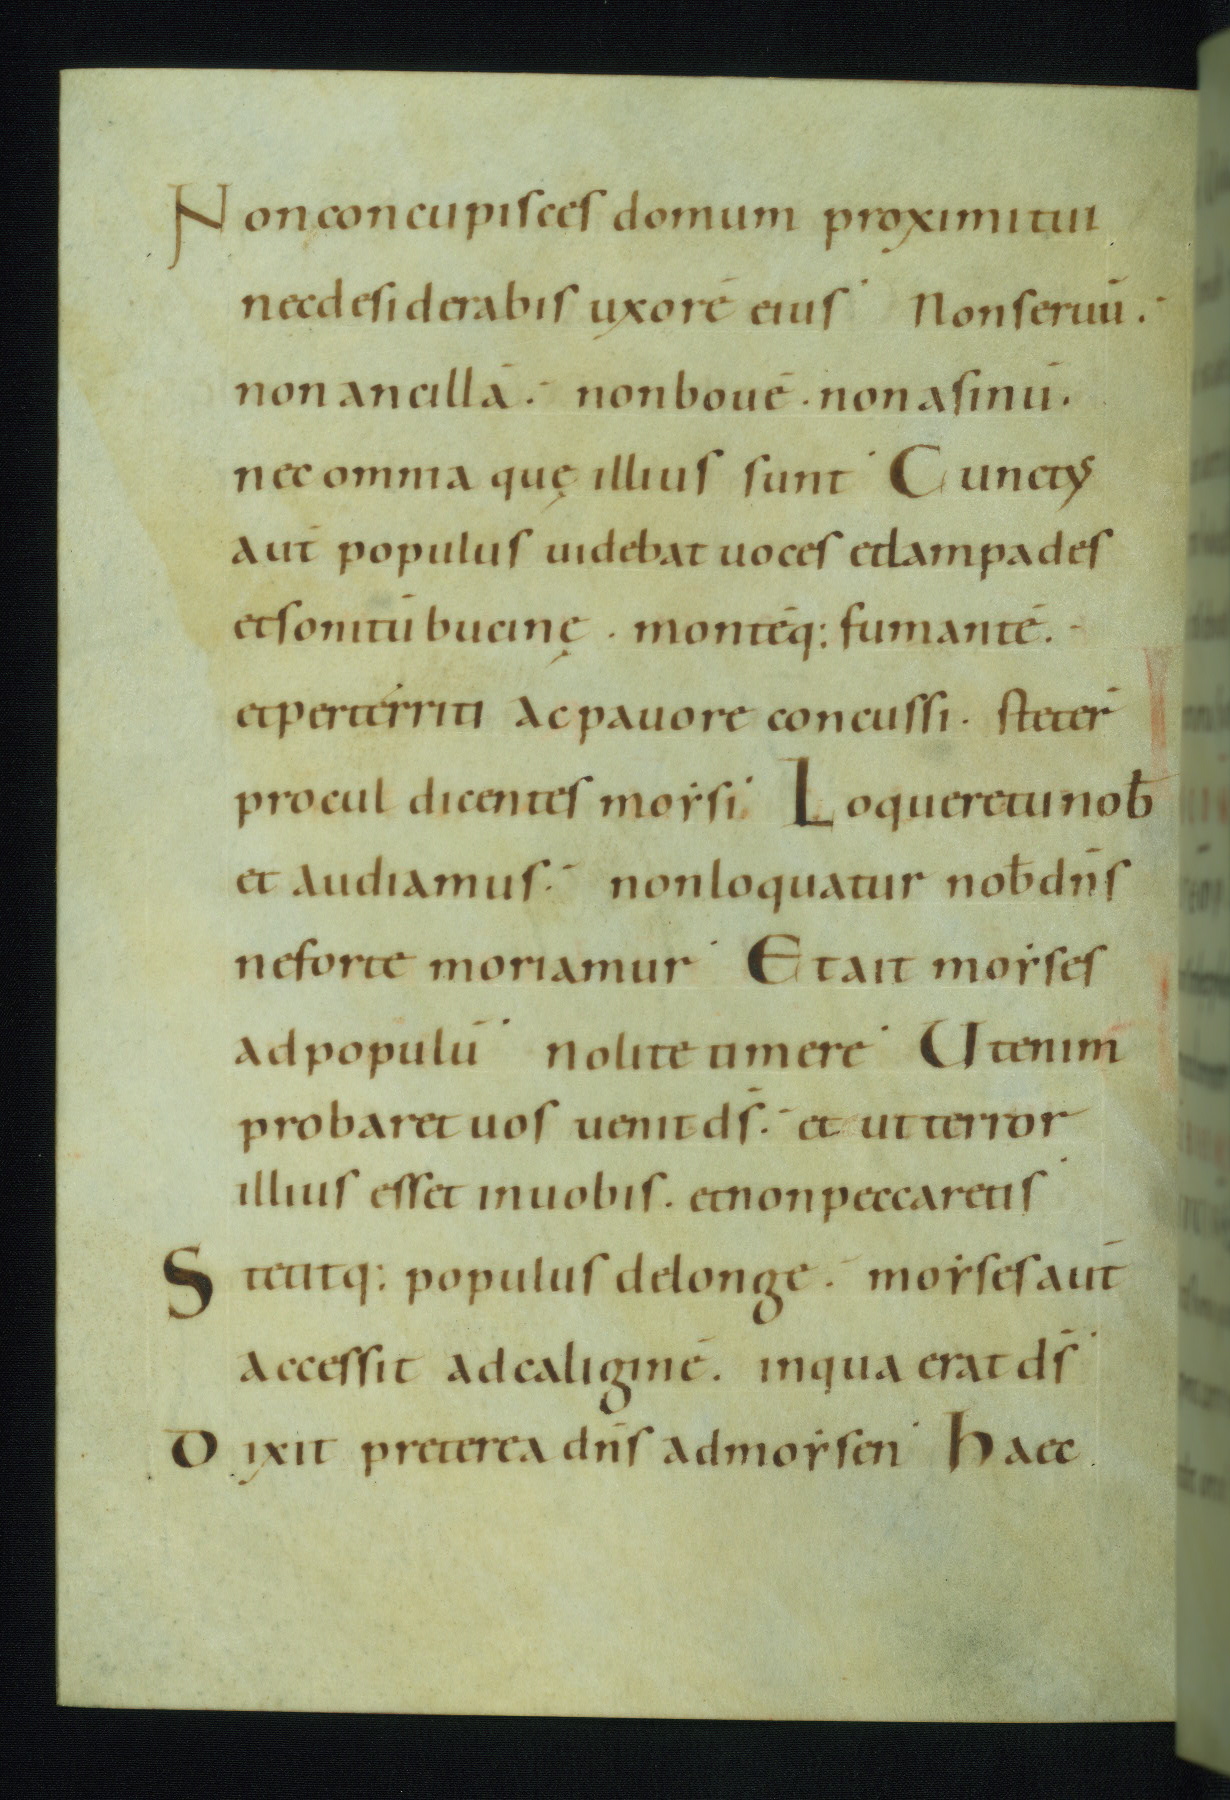 Non concupisces domum proximi tui
nec desiderabis uxorē eius· Non seruū.
non ancillā. non bouē. non asinū.
nec omnia quę illius sunt· Cunctꝰ
aut̄ populus uidebat uoces et lampades
et sonitū bucinę. montēq: fumantē.
et perterriti ac pauore concussi. steter̄
procul dicentes moẏsi· Loquere tu nob̄
et audiamus. non loquatur nob̄ dn̄s
ne forte moriamur· Et ait moẏses
ad populū· nolite timere· Ut enim
probaret uos uenit ds̄. et ut terror
illius esset in uobis. et non peccaretis·
Stetitq: populus de longe. moẏses aut̄
accessit ad caliginē. in qua erat ds̄·
Dixit preterea dn̄s ad moẏsen· Haec